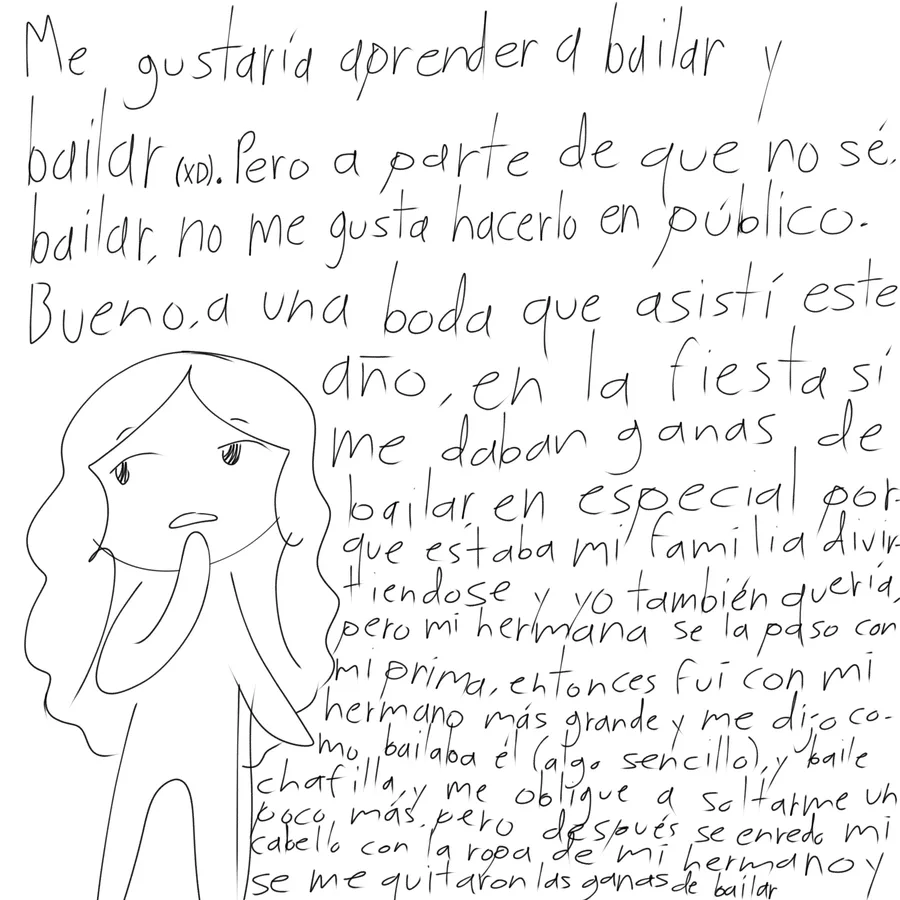 Me gustaría aprender a bailar y
bailar (XD). Pero a parte de que no sé.
bailar, no me gusta hacerlo en público.
Bueno, a una boda que asistí este
año, en la fiesta si
me daban ganas de
bailar en especial por-
que estaba mi familia divir-
tiendose y yo también quería,
pero mi hermana se la paso con
mi prima, entonces fui con mi
hermano más grande y me dijo co-
mo bailaba él (algo sencillo), y baile
chafilla, y me obligue a soltarme un
poco más. pero después se enredo mi
cabello con la ropa de mi hermano y
se me quitaron las ganas de bailar